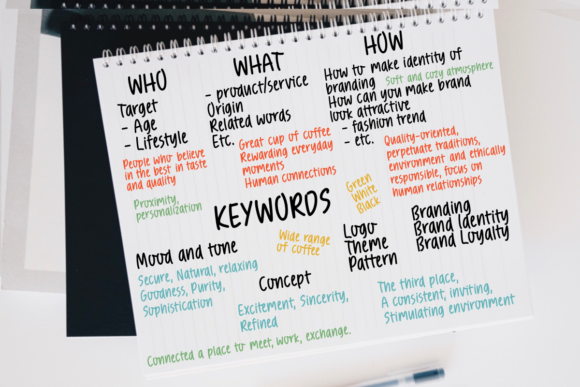 WHO
Target
- Age
- Lifestyle
People who believe
in the best in taste
and quality
Proximity,
personalization
WHAT
- product/service
Origin
Related words
Etc.
Great cup of coffee
Rewarding everyday
moments
Human connections
HOW
How to make identity of
branding
Soft and cozy atmosphere
How can you make brand
look attractive
- fashion trend
- etc.
Quality-oriented,
perpetuate traditions,
environment and ethically
responsible, focus on
human relationships
Green
White
Black
KEYWORDS
Mood and tone
Secure, Natural, relaxing
Goodness, Purity,
Sophistication
Wide range
of coffee
Concept
Excitement, Sincerity,
Refined
Logo
Theme
Pattern
Branding
Brand Identity
Brand Loyalty
The third place,
A consistent, inviting,
Stimulating environment
Connected a place to meet, work, exchange.